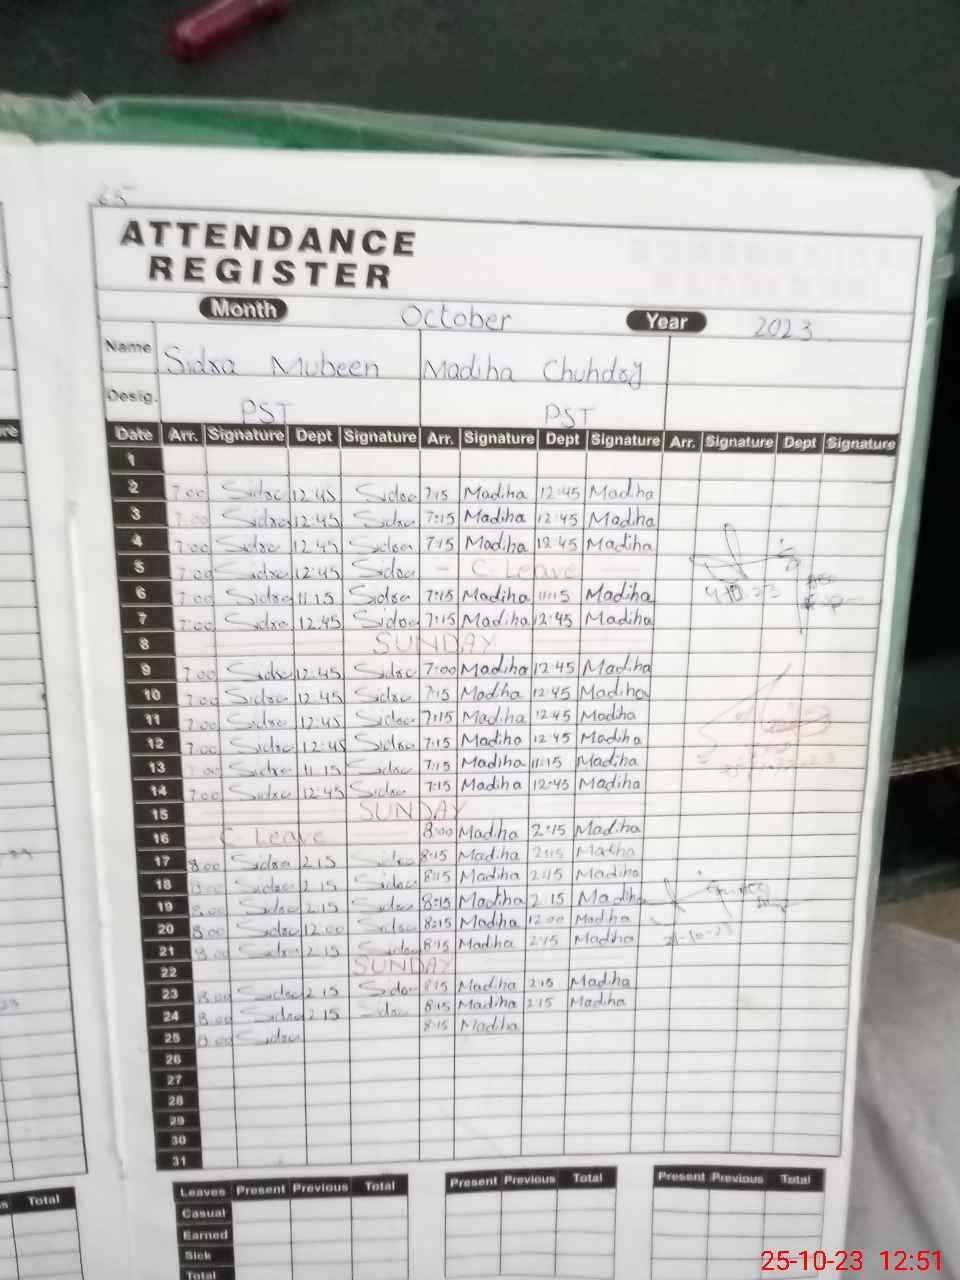 65
ATTENDANCE
REGISTER
Month October Year 2023
Name Sidra Mubeen Madiha Chuhdry
Desig. PST PST
Date Arr. Signature Dept Signature Arr. Signature Dept Signature Arr. Signature Dept Signature
1
2 7:00 Sidra 12:45 Sidra 7:15 Madiha 12:45 Madiha
3 7:00 Sidra 12:45 Sidra 7:15 Madiha 12:45 Madiha
4 7:00 Sidra 12:45 Sidra 7:15 Madiha 12:45 Madiha
5 7:00 Sidra 12:45 Sidra - C. Leave -
6 7:00 Sidra 11:15 Sidra 7:15 Madiha 11:15 Madiha 4.10.23
7 7:00 Sidra 12:45 Sidra 7:15 Madiha 12:45 Madiha
8 SUNDAY
9 7:00 Sidra 12:45 Sidra 7:00 Madiha 12:45 Madiha
10 7:00 Sidra 12:45 Sidra 7:15 Madiha 12:45 Madiha
11 7:00 Sidra 12:45 Sidra 7:15 Madiha 12:45 Madiha
12 7:00 Sidra 12:45 Sidra 7:15 Madiha 12:45 Madiha
13 7:00 Sidra 11:15 Sidra 7:15 Madiha 11:15 Madiha
14 7:00 Sidra 12:45 Sidra 7:15 Madiha 12:45 Madiha
15 SUNDAY
16 C. Leave 8:00 Madiha 2:15 Madiha
17 8:00 Sidra 2:15 Sidra 8:15 Madiha 2:15 Madiha
18 8:00 Sidra 2:15 Sidra 8:15 Madiha 2:15 Madiha
19 8:00 Sidra 2:15 Sidra 8:15 Madiha 2:15 Madiha
20 8:00 Sidra 12:00 Sidra 8:15 Madiha 12:00 Madiha
21 8:00 Sidra 2:15 Sidra 8:15 Madiha 2:15 Madiha 21-10-23
22 SUNDAY
23 8:00 Sidra 2:15 Sidra 8:15 Madiha 2:15 Madiha
24 8:00 Sidra 2:15 Sidra 8:15 Madiha 2:15 Madiha
25 8:00 Sidra 8:15 Madiha
26
27
28
29
30
31
Leaves Present Previous Total Present Previous Total Present Previous Total
Casual
Earned
Sick
Total
Total
25-10-23 12:51